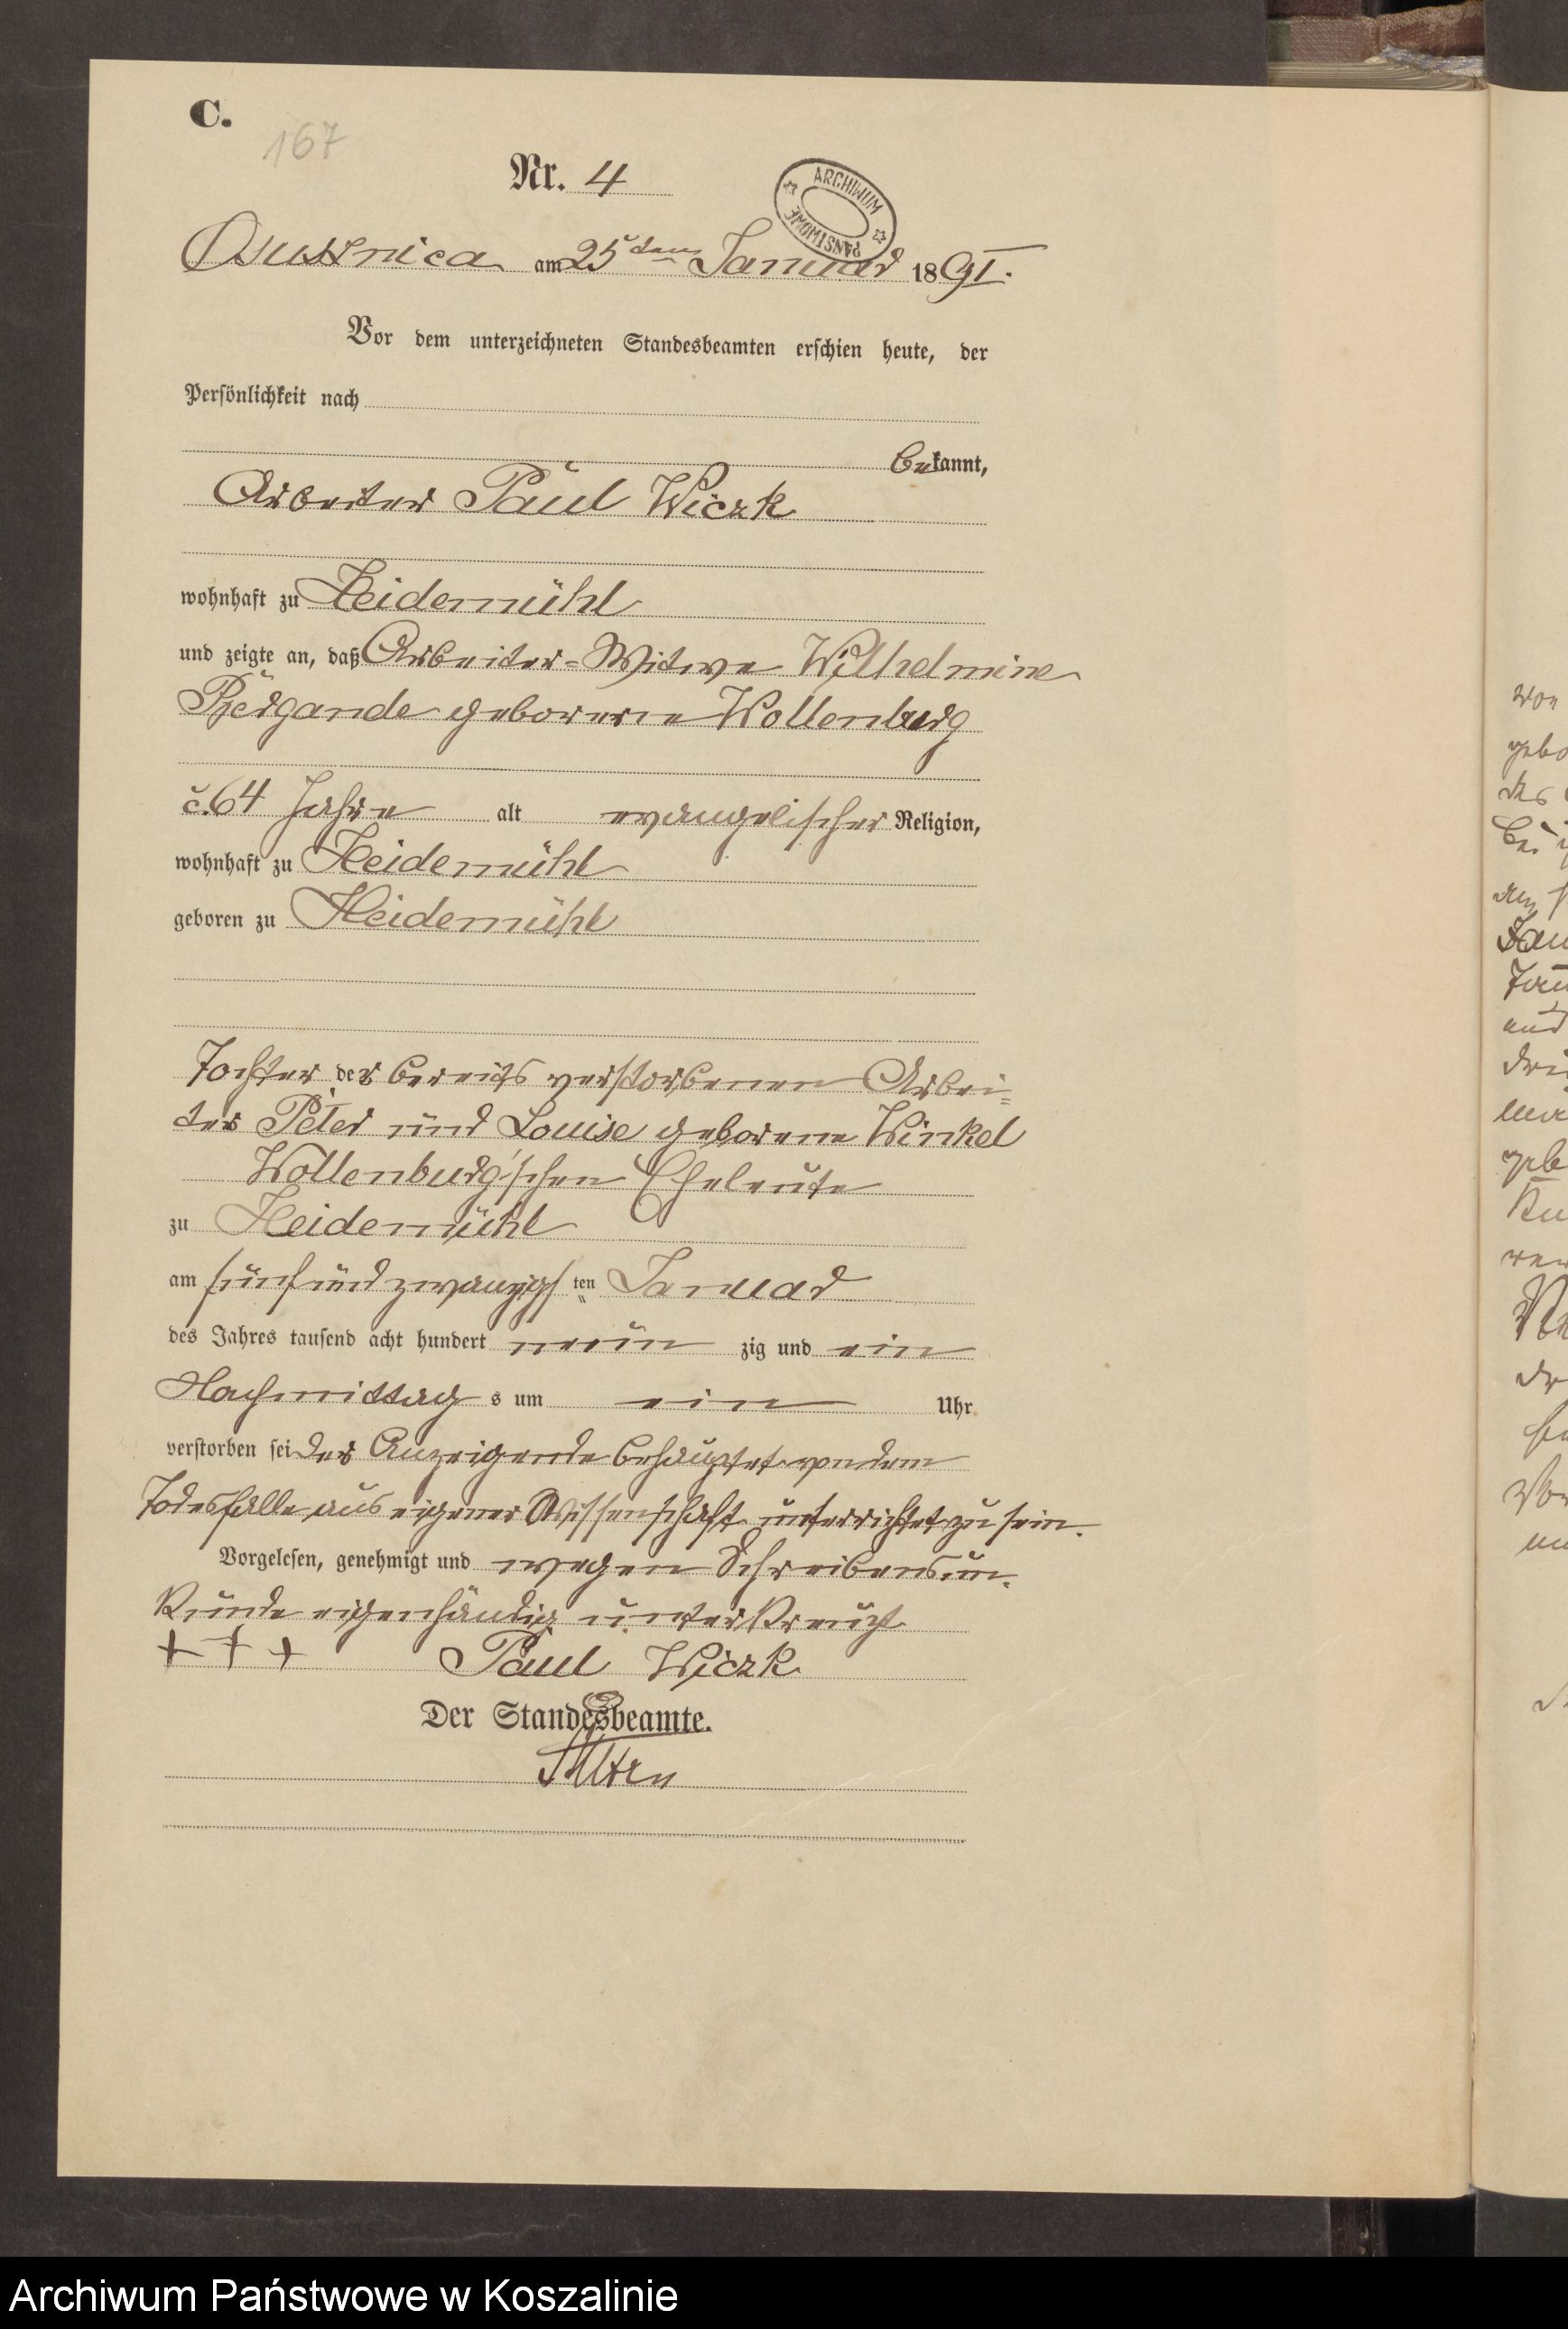 C.
167
Nr. 4
ARCHIWUM PAŃSTWOWE
Ossusnica am 25ten Januar 1891.
Vor dem unterzeichneten Standesbeamten erschien heute, der
Persönlichkeit nach
bekannt,
Arbeiter Paul Wiczk
wohnhaft zu Heidemühl
und zeigte an, daß Arbeiter-Witwe Wilhelmine
Pergande geborene Wollenburg
c. 64 Jahre alt evangelischer Religion,
wohnhaft zu Heidemühl
geboren zu Heidemühl
Tochter der bereits verstorbenen Arbei=
ter Peter und Louise geborene Winkel
Wollenburg'schen Eheleute
zu Heidemühl
am fünfundzwanzigsten Januar
des Jahres tausend acht hundert neunzig und ein
Nachmittags um ein Uhr
verstorben sei der Anzeigende behauptet von dem
Todesfalle aus eigener Wissenschaft unterrichtet zu sein.
Vorgelesen, genehmigt und wegen Schreibensun-
kunde eigenhändig unterkreuzt
+++ Paul Wiczk
Der Standesbeamte.
von
gebo
des
bei
den
Jan
und
drei
gebo
Archiwum Państwowe w Koszalinie